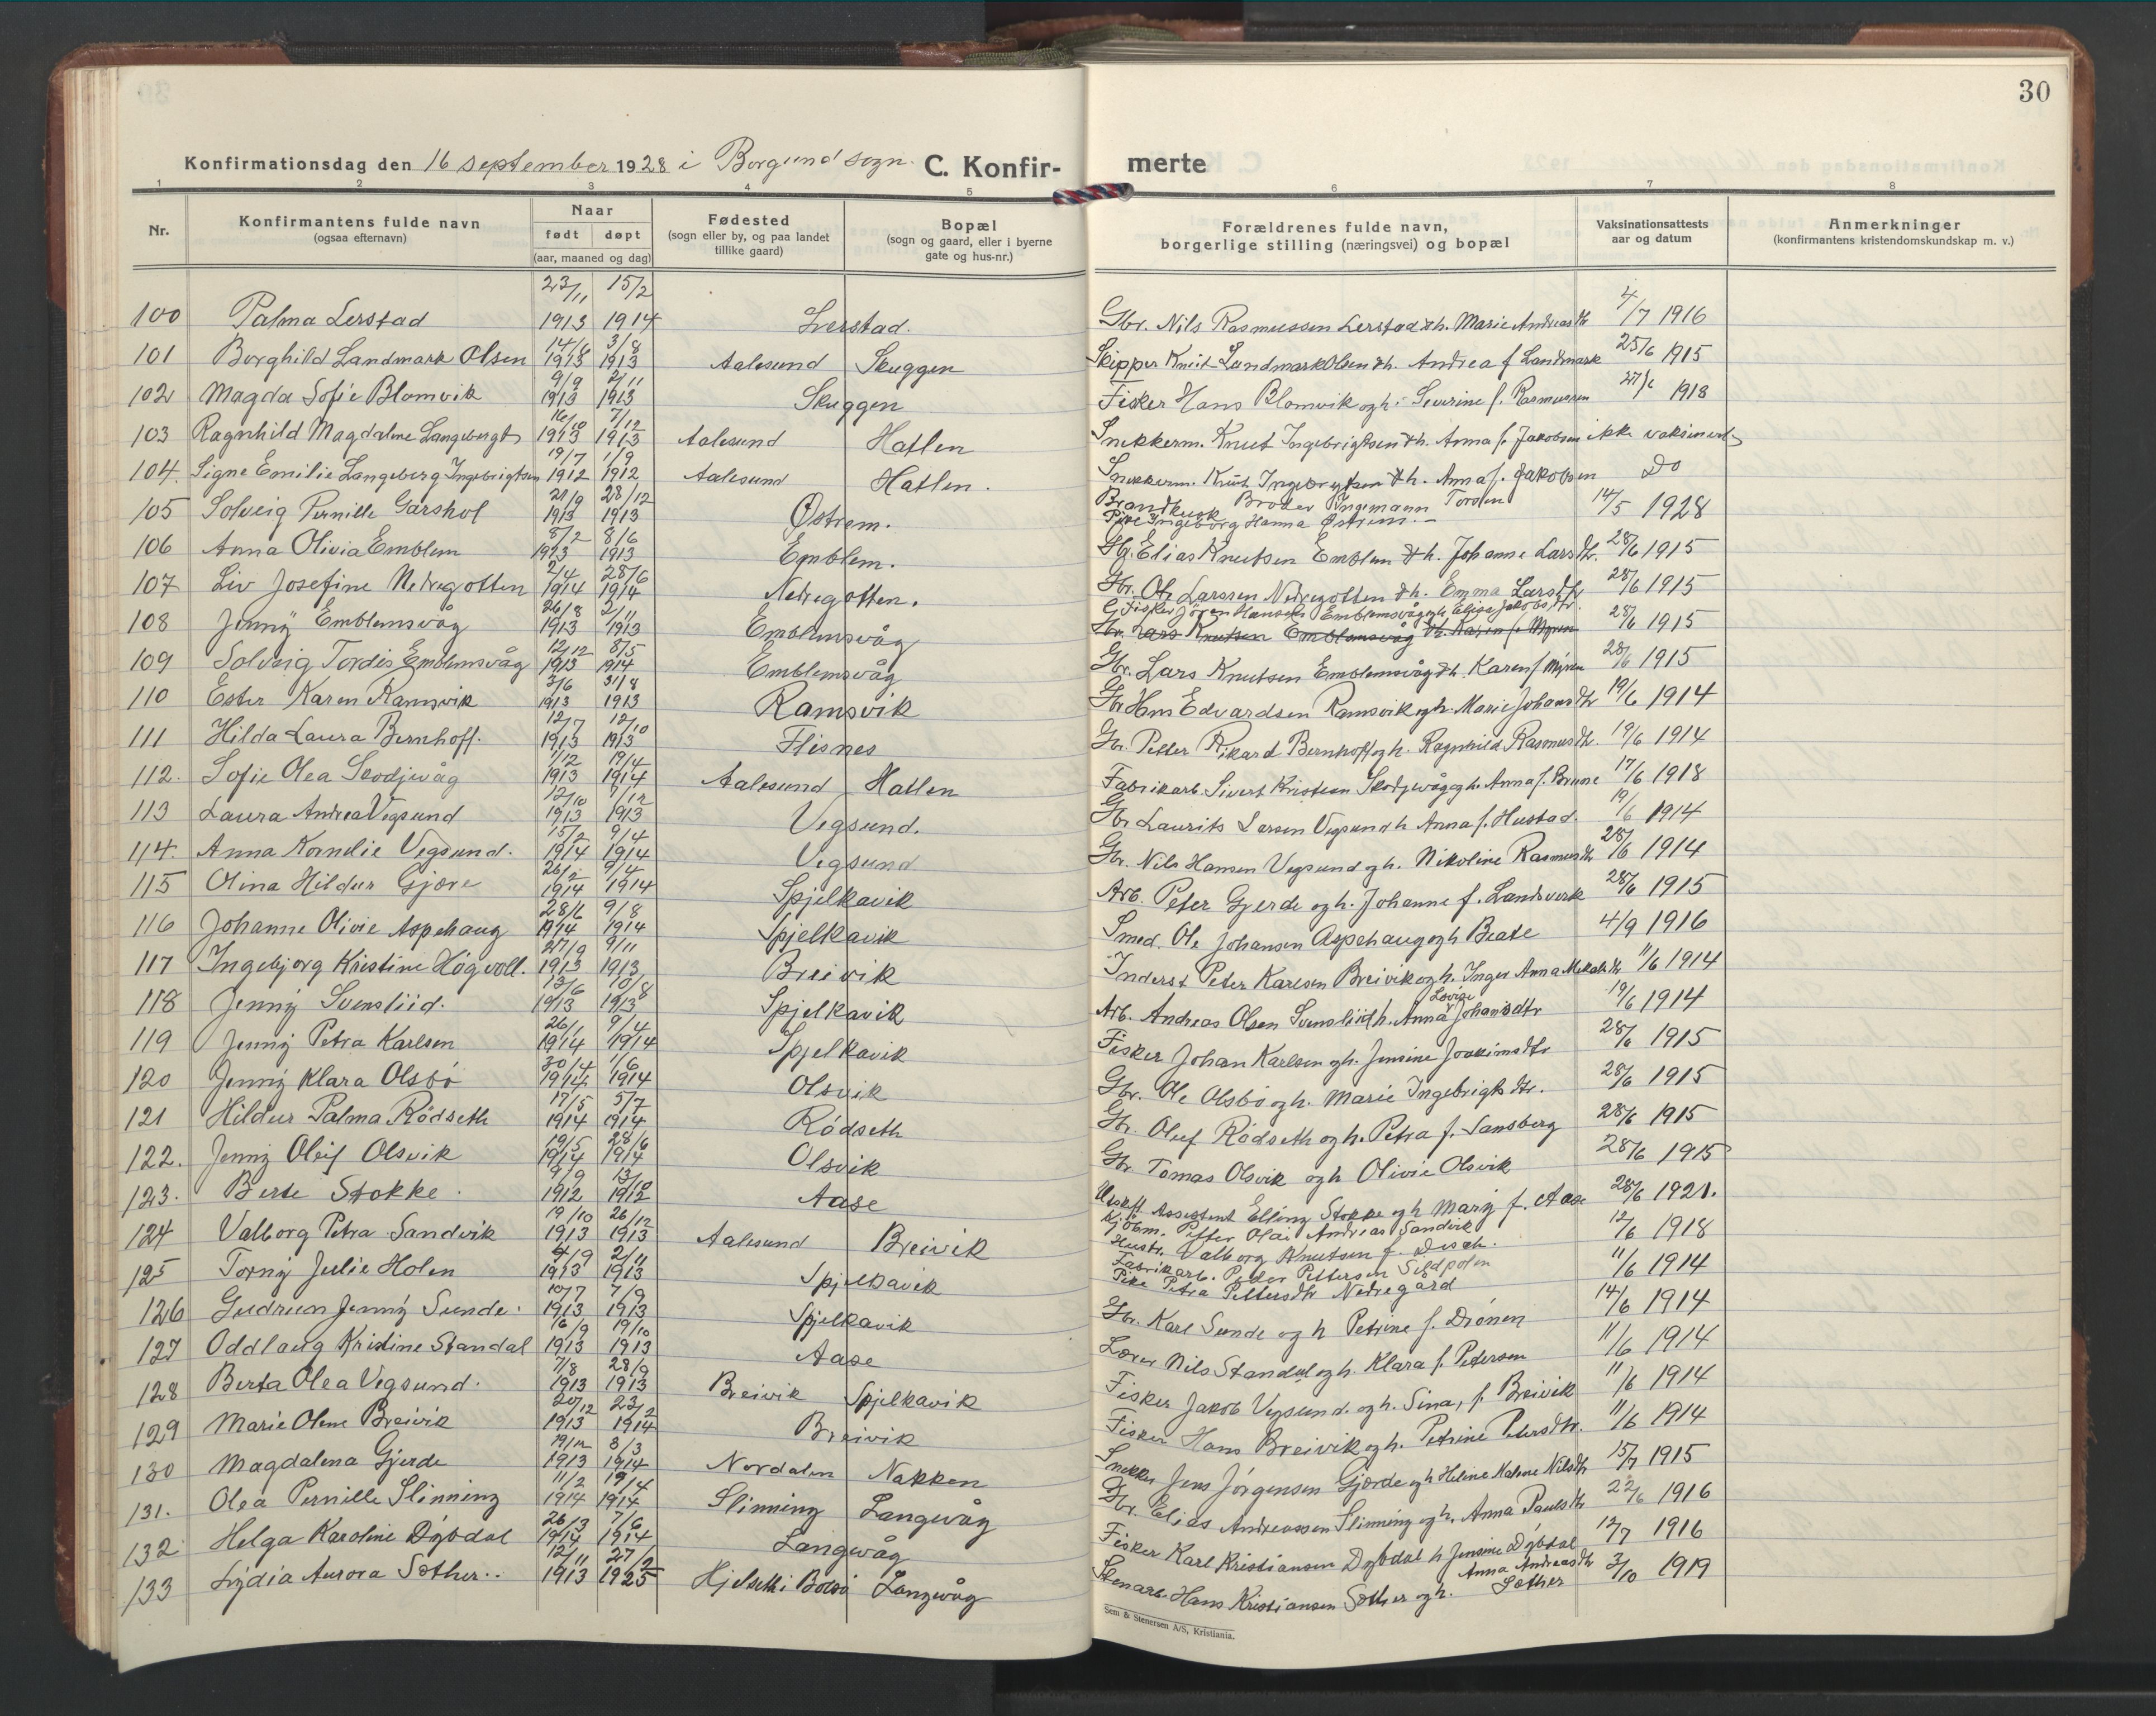 30
Konfirmationsdag den 16 september 1928 i Borgund sogn. C. Konfirmerte
1 2 3 4 5 6 7 8
Nr. Konfirmantens fulde navn (ogsaa efternavn) Naar født døpt (aar, maaned og dag) Fødested (sogn eller by, og paa landet tillike gaard) Bopæl (sogn og gaard, eller i byerne gate og hus-nr.) Forældrenes fulde navn, borgerlige stilling (næringsvei) og bopæl Vaksinationsattests aar og datum Anmerkninger (konfirmantens kristendomskundskap m. v.)
100 Palma Lerstad 23/11 1913 15/2 1914 Lerstad. Gbr. Nils Rasmussen Lerstad & h. Marie Andreasdtr 4/7 1916
101 Borghild Landmark Olsen 14/6 1913 3/8 1913 Aalesund Skuggen Skipper Knut Landmark Olsen & h. Andrea f Landmark 25/6 1915
102 Magda Sofie Blomvik 9/9 1913 2/11 1913 Skuggen Fisker Hans Blomvik og h. Severine f. Rasmussen 27/6 1918
103 Ragnhild Magdalene Langebergt 16/10 1913 7/12 1913 Aalesund Hatlen Snekkerm. Knut Ingebrigtsen & h. Anna f. Jakobsen ikke vaksinert
104. Signe Emilie Langeberg Ingebrigtsen 19/7 1912 1/9 1912 Aalesund Hatlen. Snekkerm. Knut Ingebrigtsen & h. Anna f. Jakobsen Do
105 Solveig Pernille Garshol 21/9 1913 28/12 1913 Østrem. Brandkusk Broder Ingemann Torsen
Pike Ingeborg Hanna Østrem. 14/5 1928
106 Anna Olivia Emblem 8/2 1913 8/6 1913 Emblem. Gbr. Elias Knutsen Emblem & h. Johanne Larsdtr. 28/6 1915
107 Liv Josefine Nedregotten 2/4 1914 28/6 1914 Nedregotten. Gbr. Ole Larssen Nedregotten & h. Emma Larsdtr 28/6 1915
108 Jenny Emblemsvåg 26/8 1913 2/11 1913 Emblemsvåg G. Fisker Jören Hansen Emblemsvåg og h. Elise Jakobsdtr.
Gbr. Lars Knutsen Emblemsvåg & h. Karen f. Myren 28/6 1915
109 Solveig Tordis Emblemsvåg 12/12 1913 8/5 1914 Emblemsvåg Gbr. Lars Knutsen Emblemsvåg & h. Karen f Myren 28/6 1915
110 Ester Karen Ramsvik 3/6 1913 31/8 1913 Ramsvik Gbr Hans Edvardsen Ramsvik og h. Marie Johansdtr 19/6 1914
111 Hilda Laura Bernhoff. 12/7 1913 12/10 1913 Flisnes Gbr. Petter Rikard Bernhoff og h. Ragnhild Rasmusdtr. 19/6 1914
112. Sofie Olea Skodjevåg 1/12 1913 19/4 1914 Aalesund Hatlen Fabrikarb. Sivert Kristian Skodjevåg og h. Anna f. Brune 17/6 1918
113 Laura Andrea Vegsund 12/10 1913 7/12 1913 Vegsund. Gbr Laurits Larsen Vegsund h Anna f. Hustad. 19/6 1914
114. Anna Kornelie Vegsund. 15/2 1914 9/4 1914 Vegsund Gbr. Nils Hansen Vegsund og h. Nikoline Rasmusdtr 28/6 1914
115 Olina Hildur Gjære 26/2 1914 9/4 1914 Spjelkavik Arb. Peter Gjerde og h. Johanne f. Landsverk 28/6 1915
116 Johanne Olivie Aspehaug 28/6 1914 9/8 1914 Spjelkavik Smed. Ole Johansen Aspehaug og h Beate 4/9 1916
117 Ingebjorg Kristine Høgvoll. 27/9 1913 9/11 1913 Breivik Inderst Peter Karlsen Breivik og h. Inger Anna Mekalsdtr 11/6 1914
118 Jenny Svensliid. 13/6 1913 10/8 1913 Spjelkavik Arb. Andreas Olsen Svensliid h. Anna Lovise Johansdtr 19/6 1914
119 Jenny Petra Karlsen 26/1 1914 9/4 1914 Spjelkavik Fisker Johan Karlsen og h. Jensine Joakimsdtr 28/6 1915
120 Jenny Klara Olsbö 30/4 1914 1/6 1914 Olsvik Gbr. Ole Olsbö og h. Marie Ingebrigtsdtr. 28/6 1915
121 Hildur Palma Rödseth 17/5 1914 5/7 1914 Rödseth Gbr. Oluf Rödseth og h. Petra f. Sansberg 28/6 1915
122. Jenny Oleif Olsvik 19/5 1914 28/6 1914 Olsvik Gbr Tomas Olsvik og h Olivie Olsvik 28/6 1915
123. Berte Stokke. 9/9 1912 13/10 1912 Aase Utskift. Assistent Elling Stokke og h Mary f. Aase 28/6 1921.
124 Valborg Petra Sandvik 19/10 1913 26/12 1913 Aalesund Breivik Kjøbm. Petter Olai Andreas Sandvik
Hustr. Valborg Knutsen f. Disch. 12/6 1918
125 Torny Julie Holen 4/9 1913 2/11 1913 Spjelkavik Fabrikarb. Peder Pettersen Sildpolen
Pike Petra Pettersdtr Nedregård 11/6 1914
126 Gudrun Jenny Sunde. 10/7 1913 7/9 1913 Spjelkavik Gbr. Karl Sunde og h Petrine f. Drönen 14/6 1914
127 Oddlaug Kristine Standal 16/9 1913 19/10 1913 Aase Lærer Nils Standal og h. Klara f. Petersen 11/6 1914
128 Berta Olea Vegsund. 7/8 1913 28/9 1913 Breivik Spjelkavik Fisker Jakob Vegsund. og h. Sina, f. Breivik 11/6 1914
129 Marie Olene Breivik 20/12 1913 23/2 1914 Breivik Fisker Hans Breivik og h. Petrine Petersdtr. 11/6 1914
130 Magdalena Gjerde 19/12 1913 8/3 1914 Nordalen Nakken Snekker Jens Jörgensen Gjerde og h Heline Malene Nilsdtr 15/7 1915
131. Olea Pernille Slinning 11/2 1914 19/4 1914 Slinning Langevåg Gbr. Elias Andreassen Slinning og h, Anna Paulsdtr 22/6 1916
132 Helga Karoline Dybdal 26/3 1914 7/6 1914 Langevåg Fisker Karl Kristiansen Dybdal h Jensine Dybdal 12/7 1916
133 Lydia Aurora Sother.. 12/11 1913 27/2 1925 Hjelset i Bolsö Langevåg Stenarb. Hans Kristiansen Sother og h. Anna Andreasdtr Sother 3/10 1919
Sem & Stenersen A/S, Kristiania.